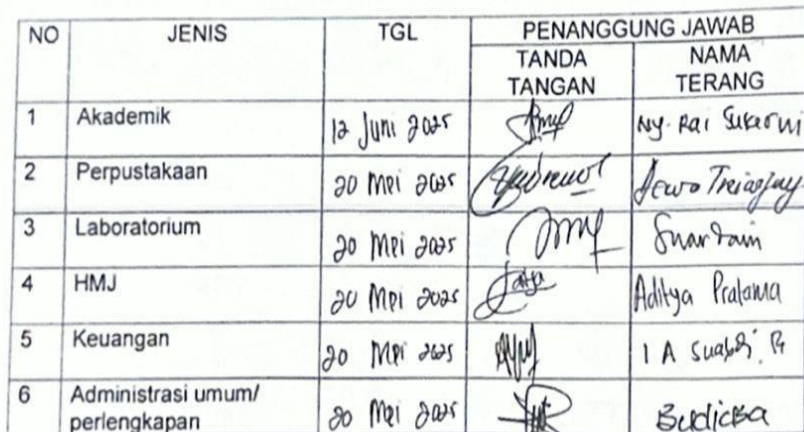 NO JENIS TGL PENANGGUNG JAWAB
TANDA TANGAN NAMA TERANG
1 Akademik 12 Juni 2025 Ny. Rai Sukarni
2 Perpustakaan 20 Mei 2025 Dewa
3 Laboratorium 20 Mei 2025
4 HMJ 20 Mei 2025 Aditya Pratama
5 Keuangan 20 Mei 2025 I A
6 Administrasi umum/ perlengkapan 20 Mei 2025